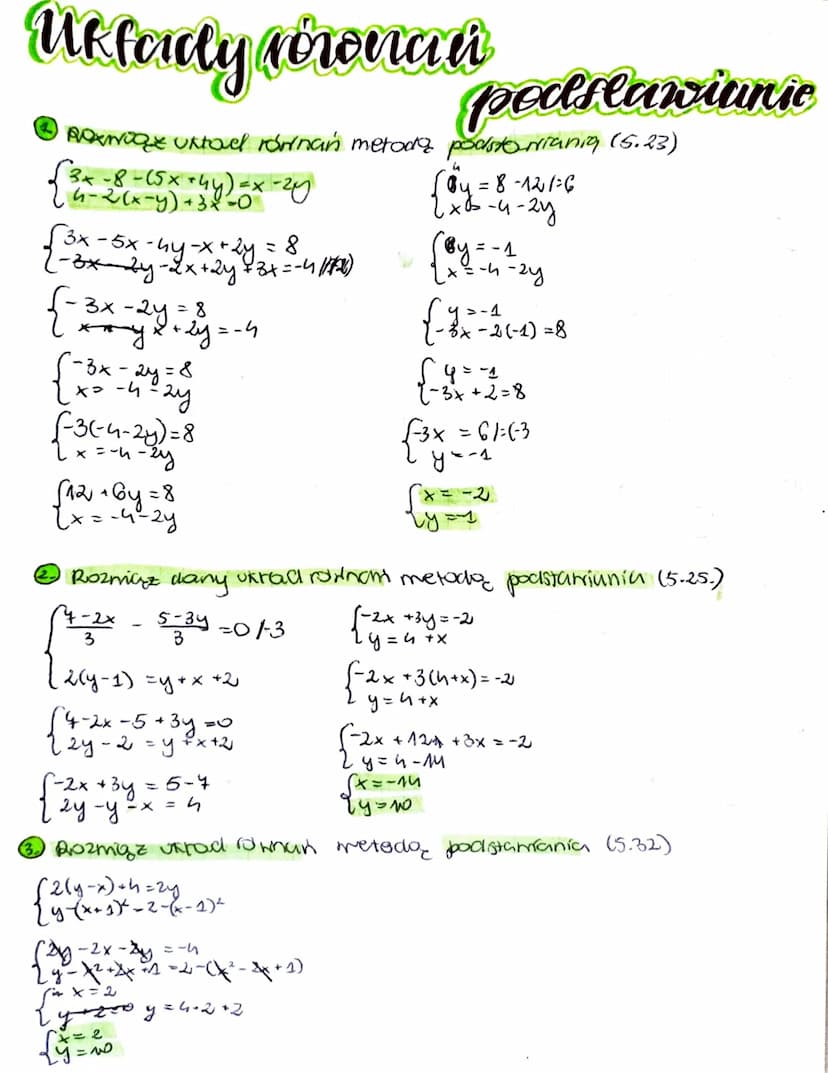 Układy równań
podstawianie
1. Rozwiąż układ równań metodą podstawiania (5.23)
3x - 8 - (5x + 4y) = x - 2y
4 - 2(x - y) + 3x = 0
3x - 5x - 4y - x + 2y = 8
-2x + 2y + 3x = -4
-3x - 2y = 8
x + 2y = -4
-3x - 2y = 8
x = -4 - 2y
-3(-4-2y) = 8
x = -4 - 2y
12 + 6y = 8
x = -4 - 2y
y = 8 - 12 /:6
x = -4 - 2y
y = -1
x = -4 - 2y
y = -1
-3x - 2(-1) = 8
y = -1
-3x + 2 = 8
-3x = 6 /:(-3
y = -1
x = -2
y = -1
2. Rozwiąż dany układ równań metodą podstawiania (5.25.)
7-2x/3 - 5-3y/3 = 0 /·3
2(y-1) = y + x + 2
7 - 2x - 5 + 3y = 0
2y - 2 = y + x + 2
-2x + 3y = 5 - 7
2y - y - x = 4
-2x + 3y = -2
y = 4 + x
-2x + 3(4+x) = -2
y = 4 + x
-2x + 12 + 3x = -2
y = 4 - 14
x = -14
y = 10
3. Rozwiąż układ równań metodą podstawiania (5.32)
2(y-x) + 4 = 2y
y - (x+1)² = 2 - (x-1)²
2y - 2x - 2y = -4
y - x² + 2x + 1 = 2 - (x² - 2x + 1)
x = 2
y = 4·2 + 2
x = 2
y = 10